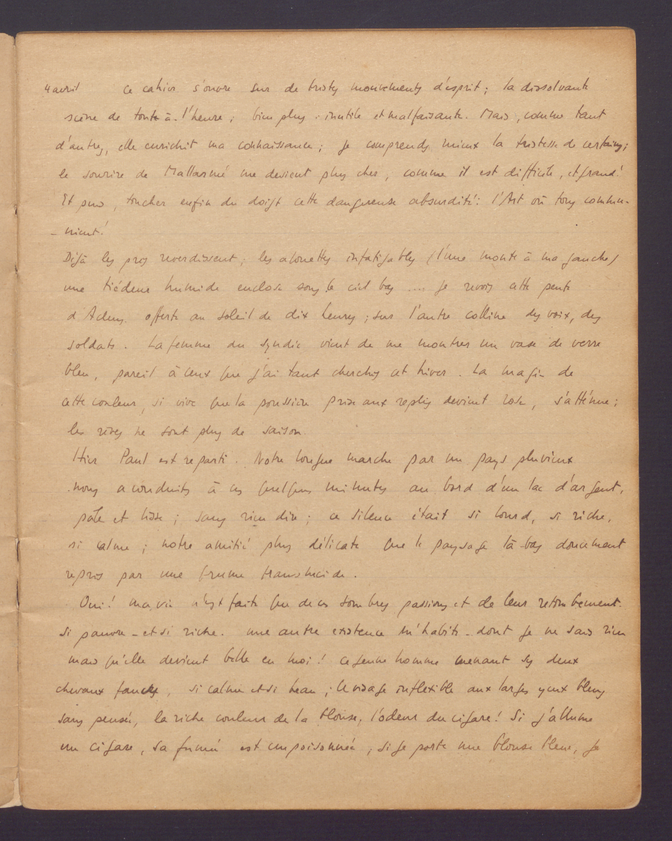 4 avril Ce cahier s'ouvre sur de tristes mouvements d'esprit ; la dissolvante
scène de tout-à-l'heure ; bien plus inutile et malfaisante. Mais, comme tant
d'autres, elle enrichit ma connaissance ; je comprends mieux la tristesse de certains ;
le sourire de Mallarmé me devient plus cher, comme il est difficile, et grand !
Et puis, toucher enfin du doigt cette dangereuse absurdité : l'Art où tous commu-
-nient !
Déjà les prés reverdissent, les alouettes infatigables (l'une monte à ma gauche)
une tiédeur humide enclose sous le ciel bas .... Je revois cette pente
d'Aclens offerte au soleil de dix heures ; sur l'autre colline des voix, des
soldats. La femme du syndic vient de me montrer un vase de verre
bleu, pareil à ceux que j'ai tant cherchés cet hiver. La magie de
cette couleur, si vive que la poussière prise aux replis devient rose, s'atténue ;
les rêves ne sont plus de saison.
Hier Paul est reparti. Notre longue marche par un pays pluvieux
nous a conduits à ces quelques minutes au bord d'un lac d'argent,
pâle et lisse ; sans rien dire ; ce silence était si lourd, si riche,
si calme ; notre amitié plus délicate que le paysage là-bas doucement
repris par une brume translucide.
Oui ! ma vie n'est faite que de ces sombres passions et de leur retombement.
Si pauvre - et si riche. Une autre existence m'habite - dont je ne sais rien
mais qu'elle devient belle en moi ! Ce jeune homme menant ses deux
chevaux fauves, si calme et si beau ; le visage inflexible aux larges yeux bleus
sans pensée, la riche couleur de la blouse, l'odeur du cigare ! Si j'allume
un cigare, sa fumée est empoisonnée ; si je porte une blouse bleue, je